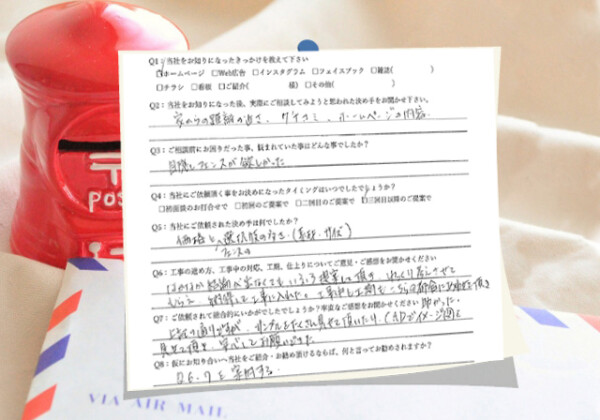 Q1:当社をお知りになったきっかけを教えて下さい
☑ホームページ □Web広告 □インスタグラム □フェイスブック □雑誌( )
□チラシ □看板 □ご紹介( 様) □その他( )
Q2:当社をお知りになった後、実際にご相談してみようと思われた決め手をお聞かせ下さい。
家からの距離の近さ、クチコミ、ホームページの内容
Q3:ご相談前にお困りだった事、悩まれていた事はどんな事でしたか?
目隠しフェンスが欲しかった
Q4:当社にご依頼頂く事をお決めになったタイミングはいつでしたでしょうか?
□初面談のお打合せで □初回のご提案で □二回目のご提案で ☑三回目以降のご提案で
Q5:当社にご依頼された決め手は何でしたか?
価格と、選択肢の多さ(素材、サイズ)
フェンスの
Q6:工事の進め方、工事中の対応、工期、仕上りについてご意見・ご感想をお聞かせください
なかなか決断が出なくてもいろいろ提案して頂き
Q7:ご依頼されて総合的にいかがでしたでしょうか?率直なご感想をお聞かせください
上記の通りですが、サンプルをたくさん見せて頂いたり、CADでイメージ図を
見せて頂き、安心してお願いできました
Q8:仮にお知り合いへ当社をご紹介・お勧め頂けるならば、何と言ってお勧めされますか?
POS
VIA AIR MAIL